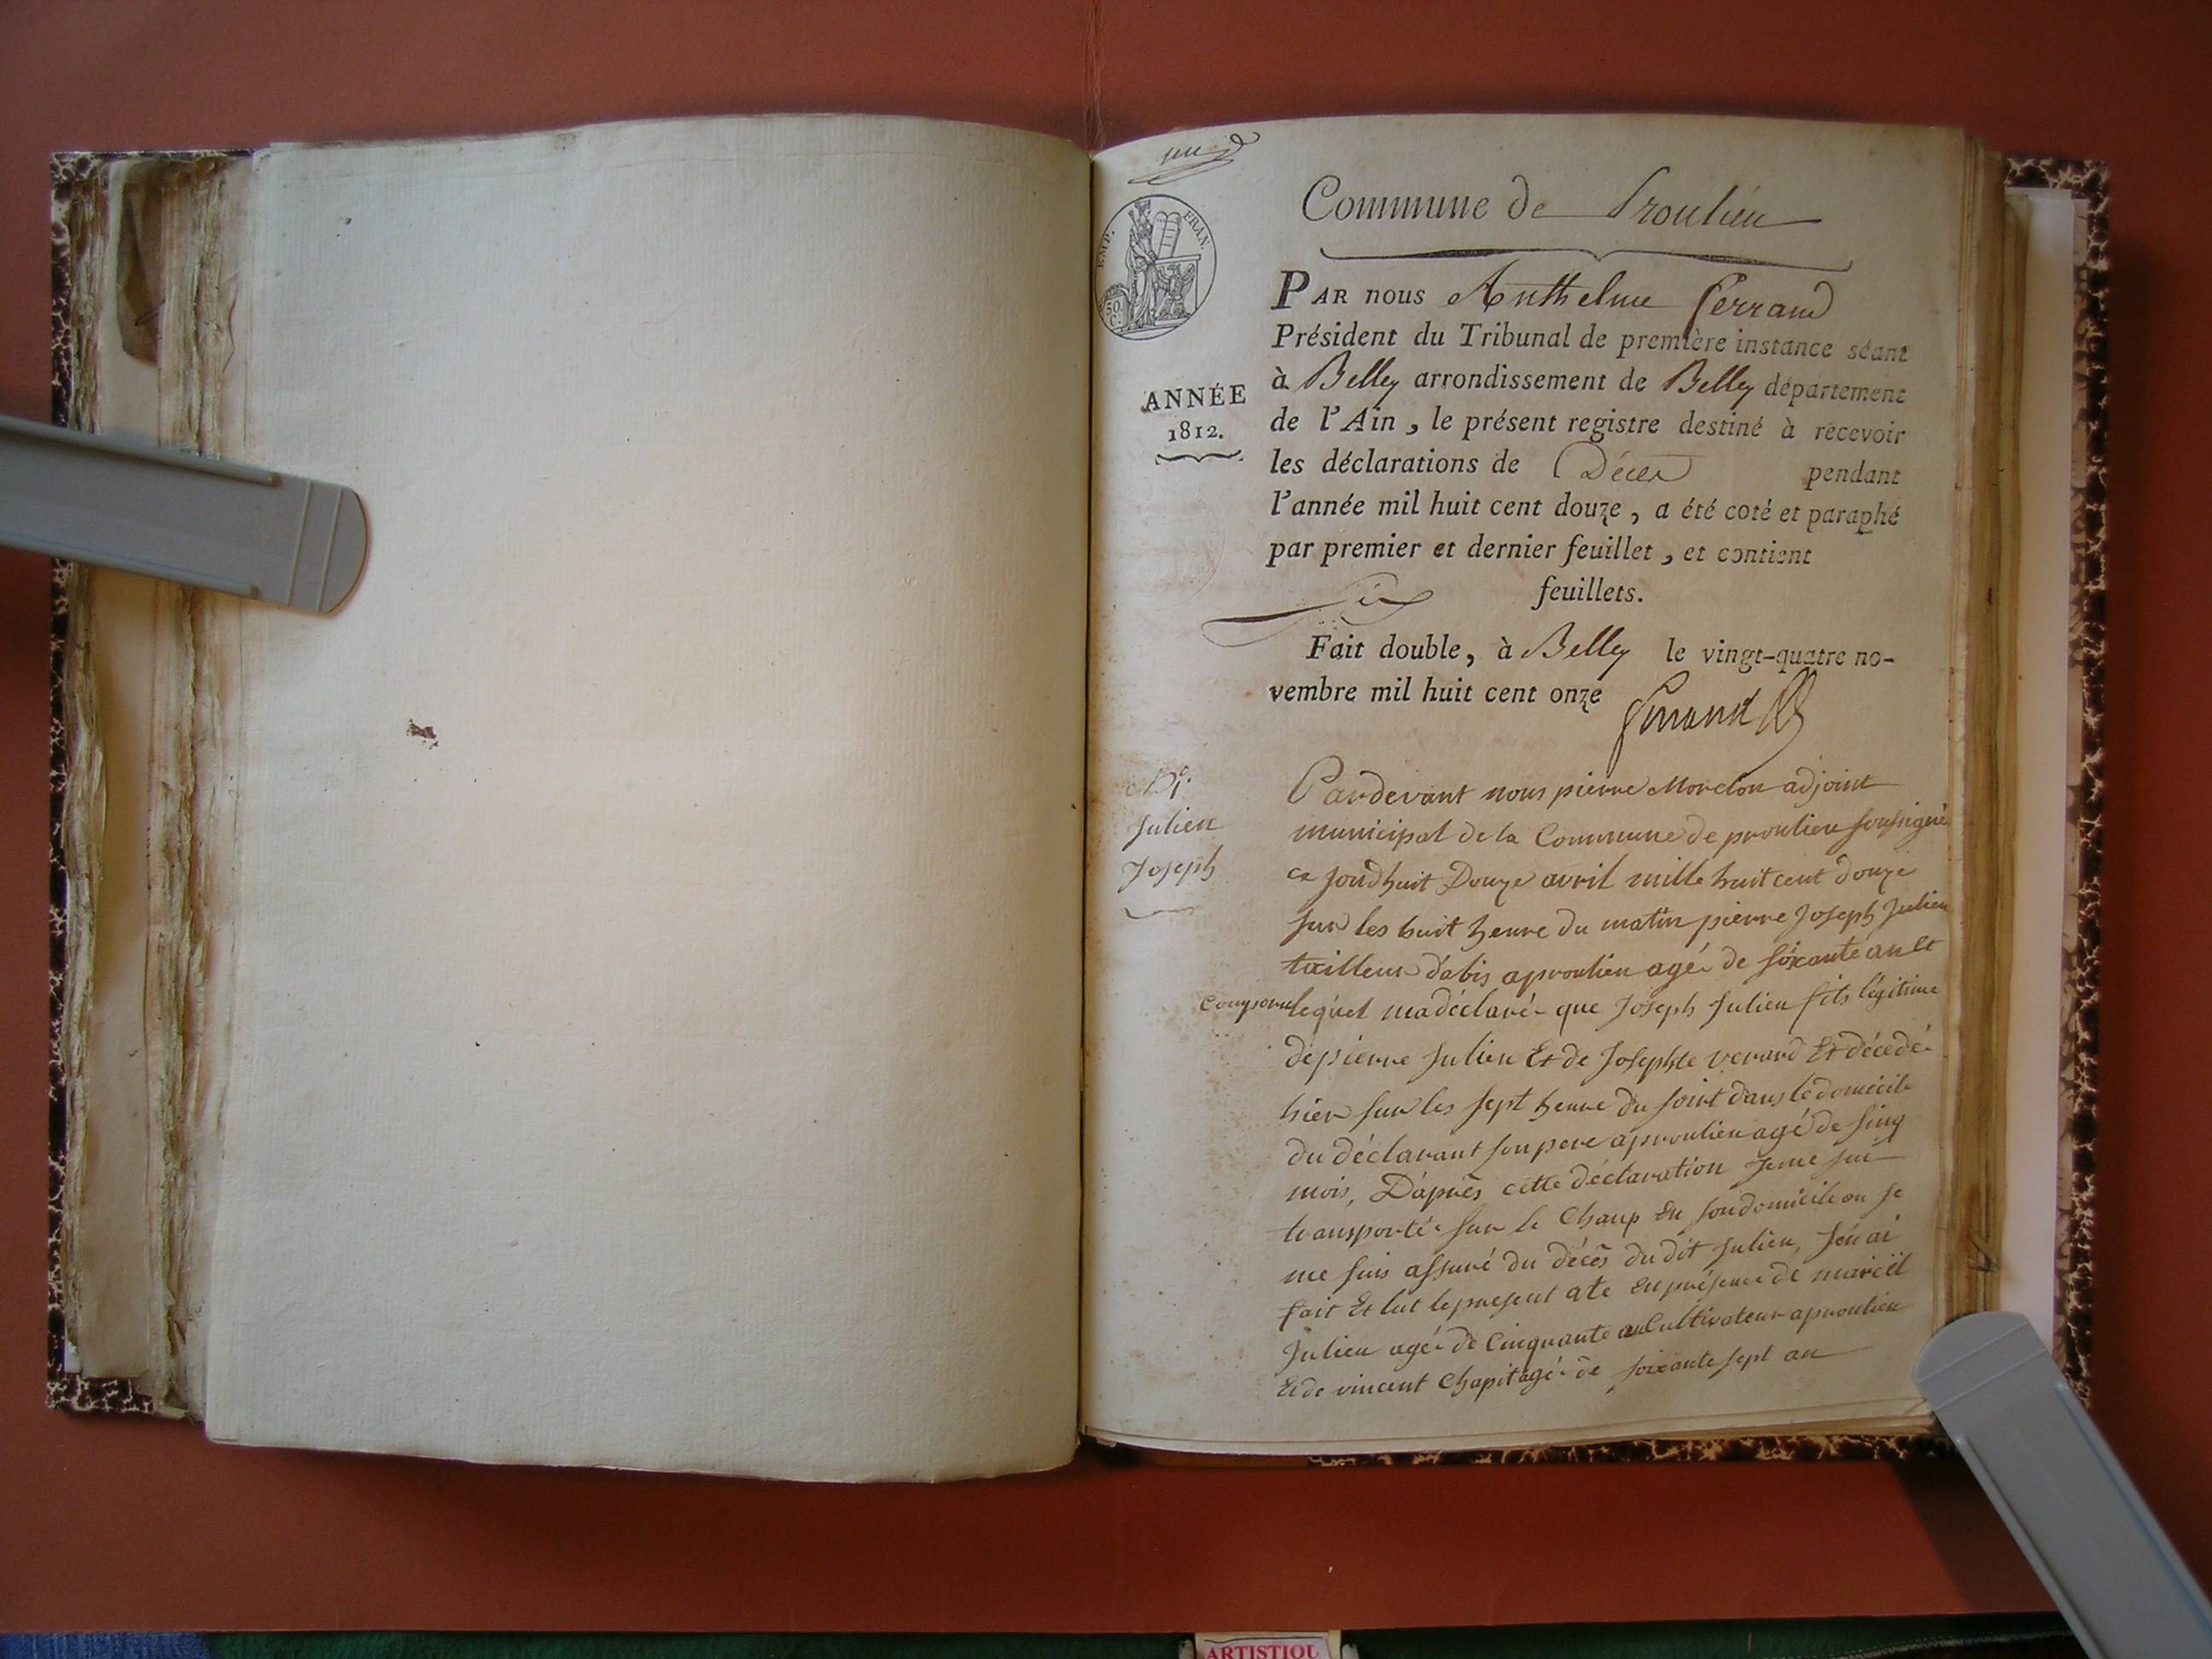 Commune de Proulieu
EMP. FRAN.
50 C.
PAR nous Anthelme Ferrand
Président du Tribunal de première instance séant
à Belley arrondissement de Belley département
ANNÉE
1812.
de l'Ain, le présent registre destiné à recevoir
les déclarations de Décès pendant
l'année mil huit cent douze, a été coté et paraphé
par premier et dernier feuillet, et contient
six feuillets.
Fait double, à Belley le vingt-quatre no-
vembre mil huit cent onze
Ferrand
N.º 1.
Julien
Joseph
Pardevant nous pierre Morelon adjoint
municipal de la Commune de proulieu soussigné
ce jourdhuit Douze avril mille huit cent douze
sur les huit heure du matin pierre Joseph Julien
tailleur d'abis aproulieu agé de soixante an Et
comparu lequel ma déclaré que Joseph Julien fils légitime
de pierre Julien Et de Josephte verard Et décédé
hier sur les sept heure du soirt dans le domicile
du déclarant son pere aproulieu agé de sinq
mois, D'aprés cette déclaration Je me sui
transporté sur le Champ En son domicile ou je
me suis assuré du décès du dit Julien, J'en ai
fait Et lut le present ate En présence de marcël
Julien agé de Cinquante an Cultivateur aproulieu
Et de vincent Chapit agé de soixante sept an
ARTISTIQU